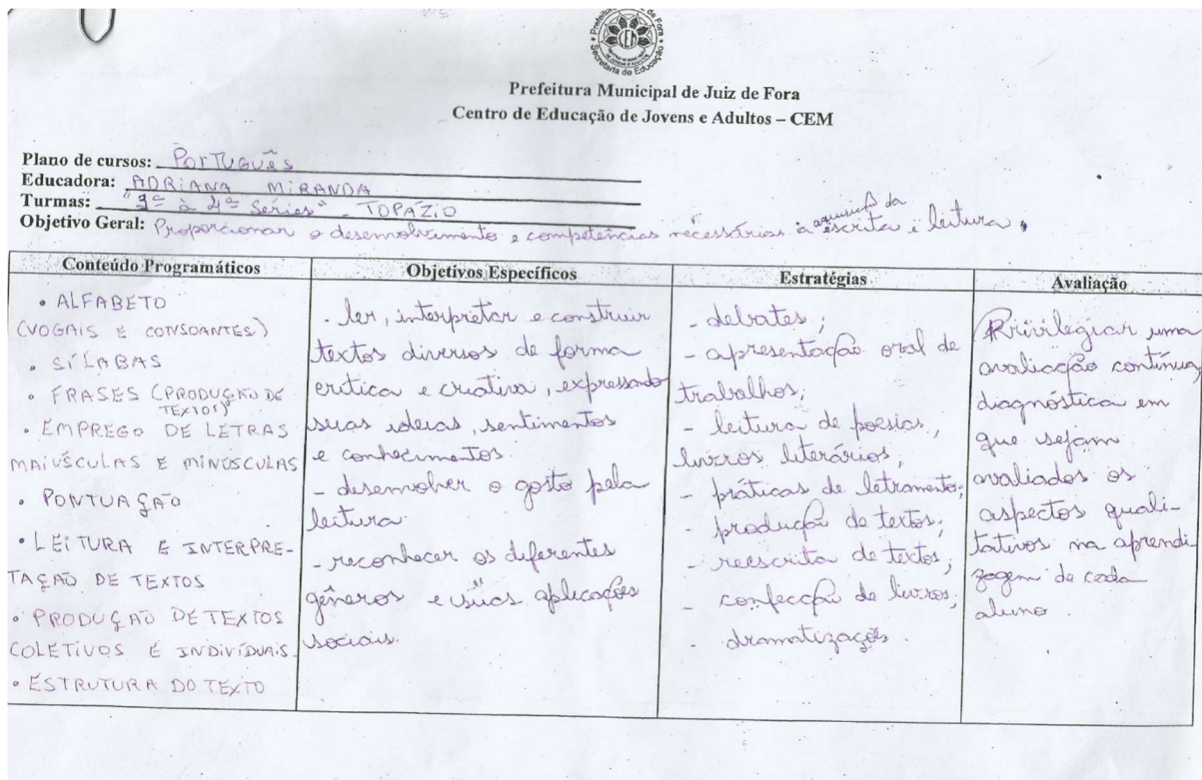 Prefeitura de Fora
CEM
Secretaria de Educação
Prefeitura Municipal de Juiz de Fora
Centro de Educação de Jovens e Adultos – CEM
Plano de cursos: Português
Educadora: ADRIANA MIRANDA
Turmas: "3ª à 4ª Séries" - TOPÁZIO
Objetivo Geral: Proporcionar o desenvolvimento e competências necessárias à aquisição da escrita e leitura.
Conteúdo Programáticos
• ALFABETO
(VOGAIS E CONSOANTES)
• SÍLABAS
• FRASES (PRODUÇÃO DE
TEXTOS)
• EMPREGO DE LETRAS
MAIÚSCULAS E MINÚSCULAS
• PONTUAÇÃO
• LEITURA E INTERPRE-
TAÇÃO DE TEXTOS
• PRODUÇÃO DE TEXTOS
COLETIVOS E INDIVÍDUAIS
• ESTRUTURA DO TEXTO
Objetivos Específicos
- ler, interpretar e construir
textos diversos de forma
crítica e criativa, expressando
suas ideias, sentimentos
e conhecimentos.
- desenvolver o gosto pela
leitura.
- reconhecer os diferentes
gêneros e suas aplicações
sociais.
Estratégias
- debates;
- apresentação oral de
trabalhos;
- leitura de poesias,
livros literários;
- práticas de letramento;
- produção de textos;
- reescrita de textos;
- confecção de livros;
- dramatizações.
Avaliação
Privilegiar uma
avaliação contínua,
diagnóstica em
que sejam
avaliados os
aspectos quali-
tativos na aprendi-
zagem de cada
aluno.